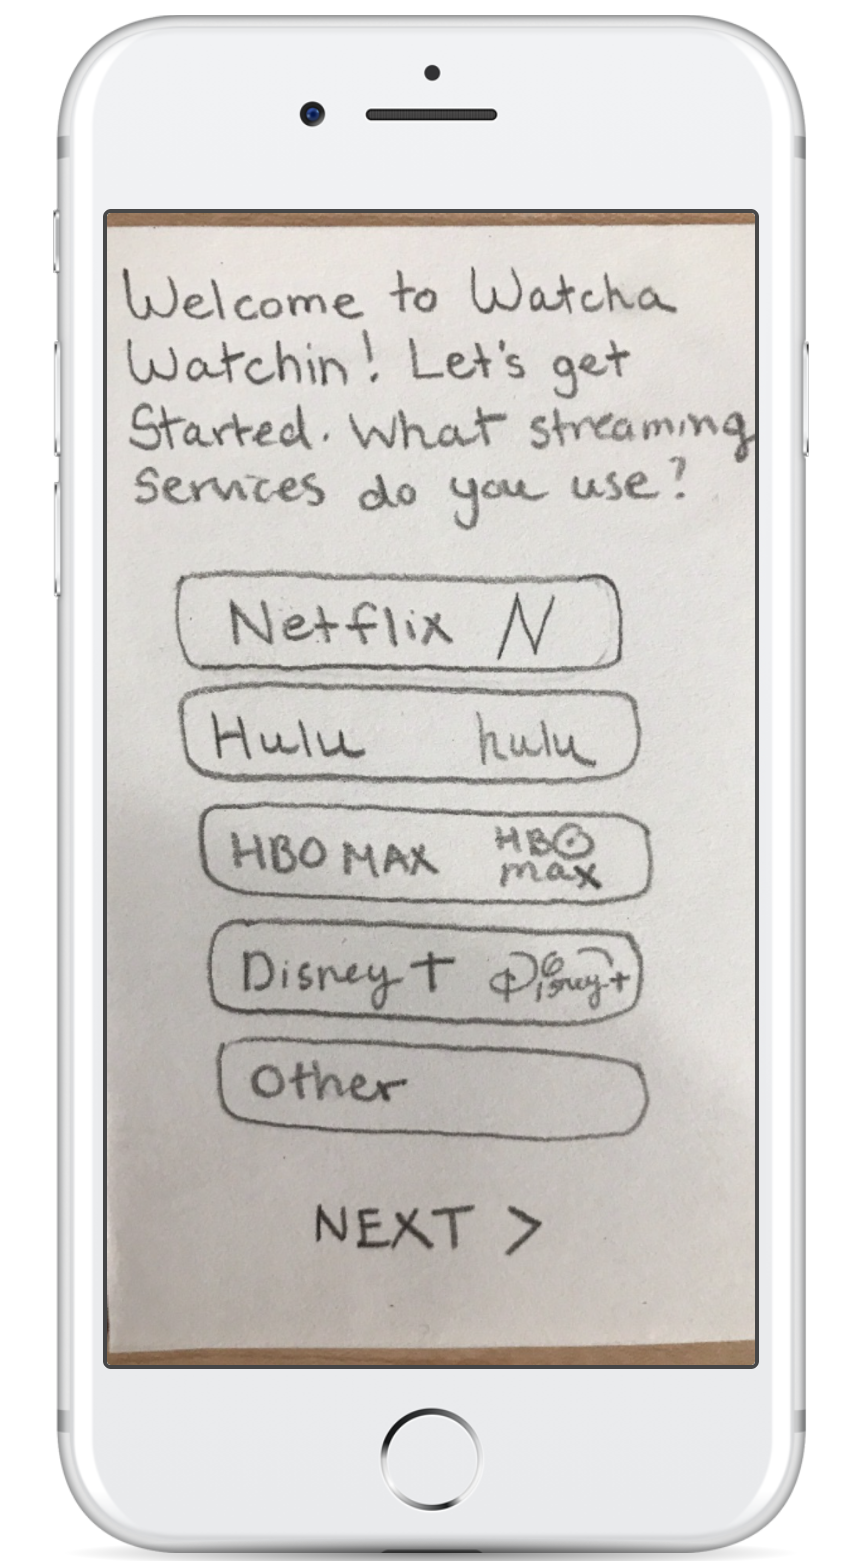 Welcome to Watcha
Watchin! Let's get
Started. What streaming
Services do you use?
Netflix N
Hulu hulu
HBO MAX HBO
max
Disney + Disney+
Other
NEXT >